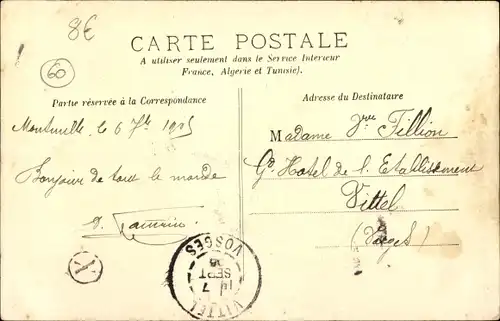 8€
60
CARTE POSTALE
A utiliser seulement dans le Service Intérieur
France, Algérie et Tunisie).
Partie réservée à la Correspondance
le 6 7bre 1905
Bonjour de tout le monde
Adresse du Destinataire
Madame Vve Fillion
Gd Hotel de l'Etablissement
Vittel
(Vosges)
VITTEL
7
SEPT
05
VOSGES